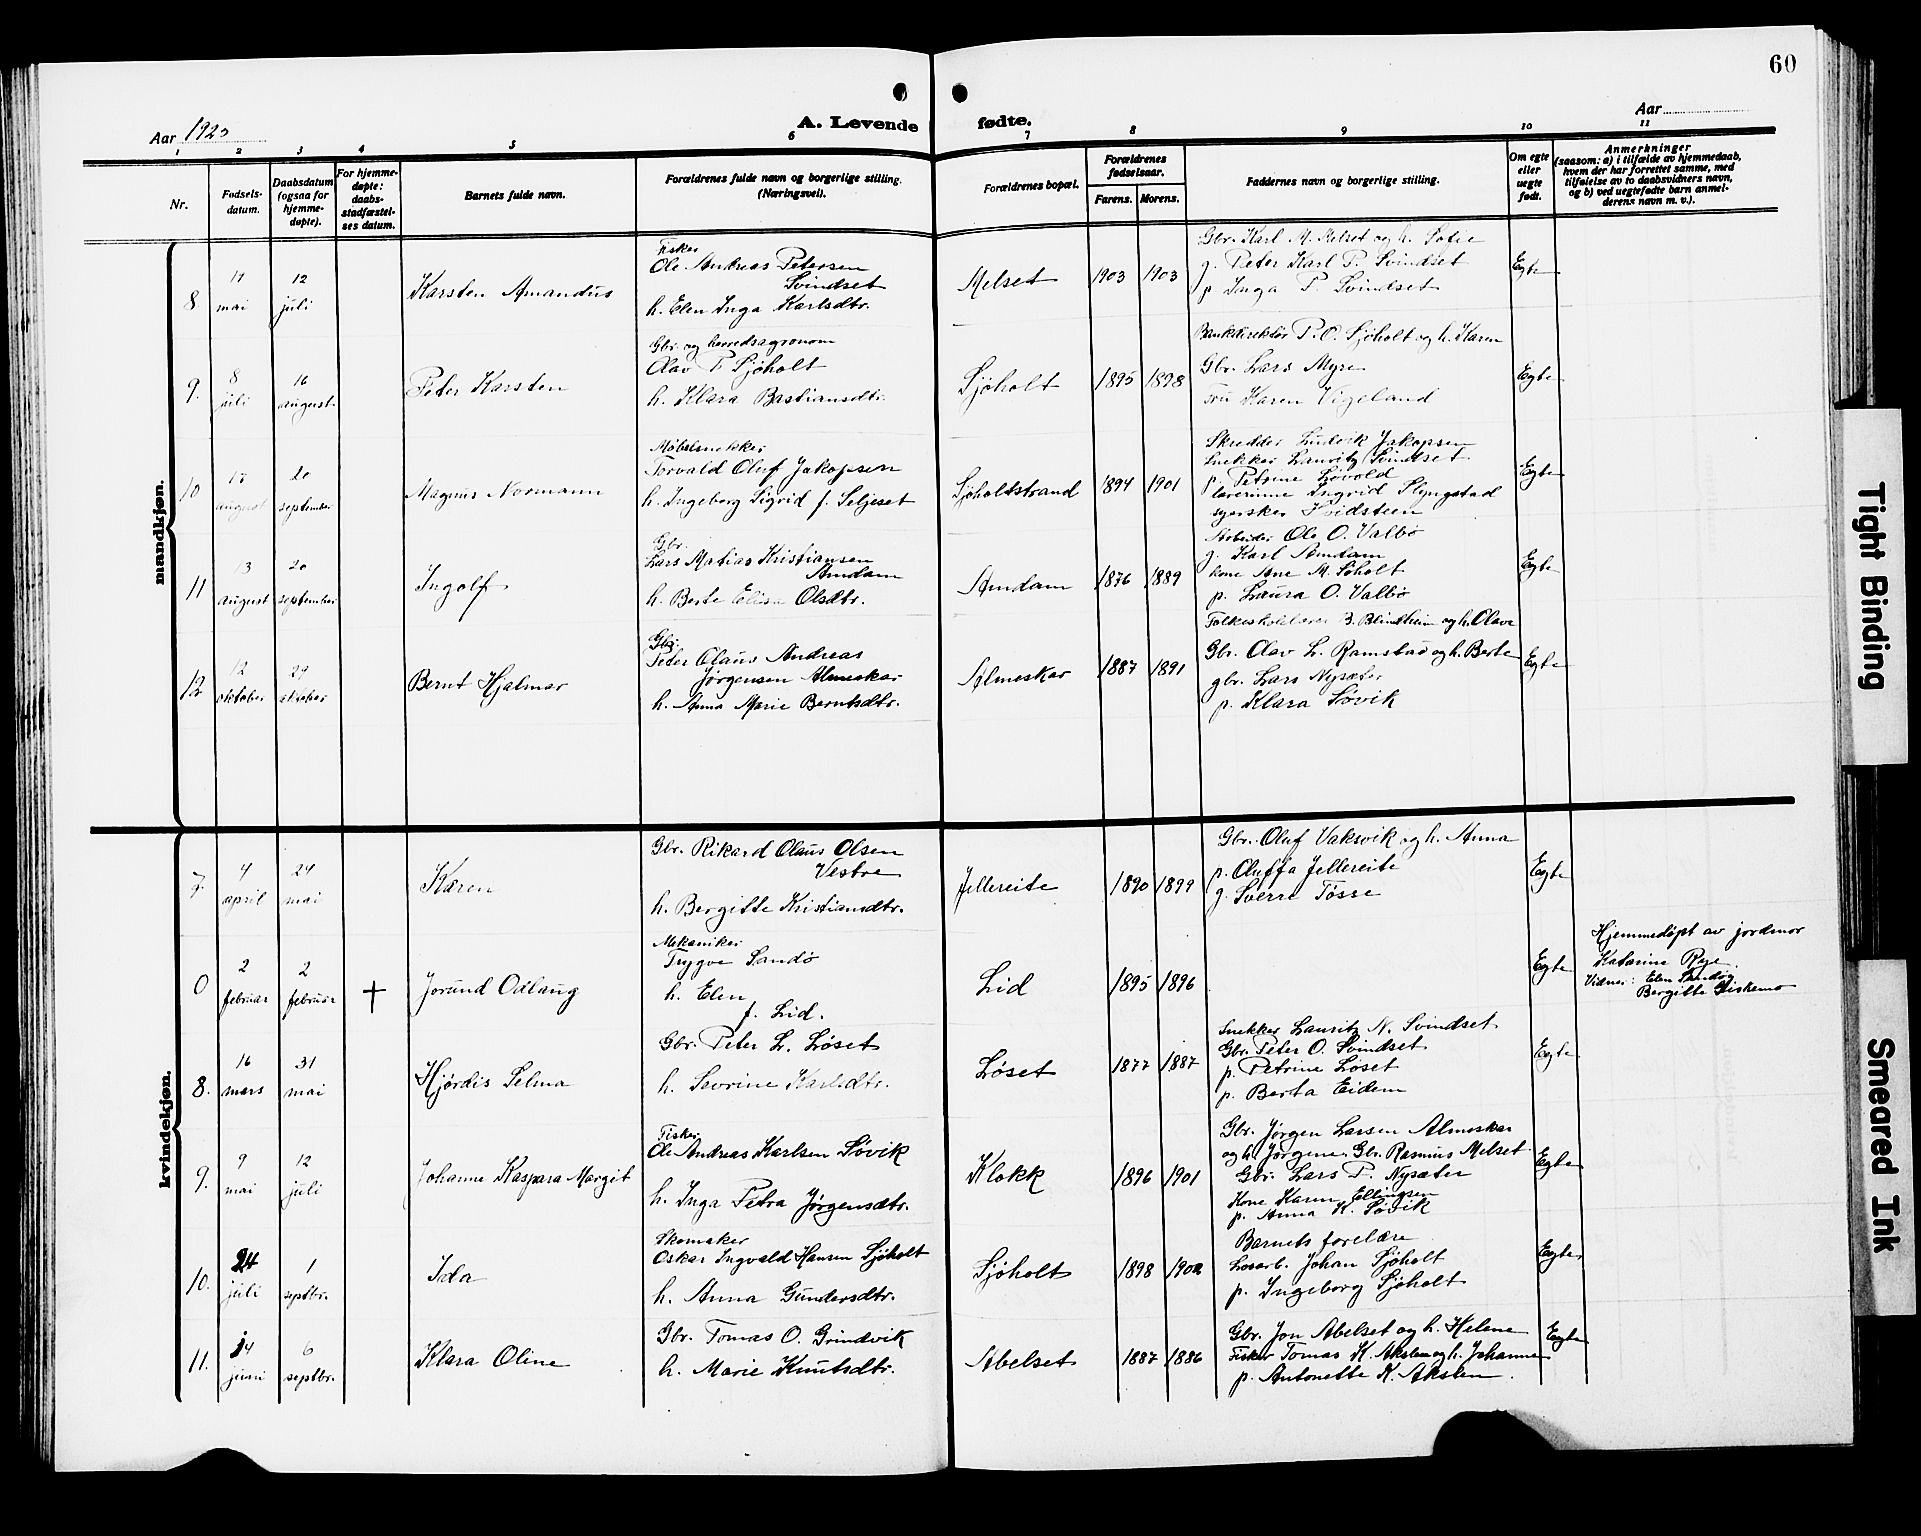 60
Aar 1925
A. Levende fødte.
Aar
1 2 3 4 5 6 7 8 9 10 11
Nr.
Fødsels-
datum.
Daabsdatum
(ogsaa for
hjemme-
døpte).
For hjemme-
døpte:
daabs-
stadfæstel-
ses datum.
Barnets fulde navn.
Forældrenes fulde navn og borgerlige stilling.
(Næringsvei).
Forældrenes bopæl.
Forældrenes
fødselsaar.
Farens. Morens.
Faddernes navn og borgerlige stilling.
Om egte
eller
uegte
født.
Anmerkninger
(saasom: a) i tilfælde av hjemmedaab,
hvem der har forrettet samme, med
tilføielse av to daabsvidners navn,
og b) ved uegtefødte barn anmel-
derens navn m. v.).
mandkjøn.
8.
11
mai
12
juli
Karsten Amandus
Fisker
Ole Andreas Petersen
Svindset
h. Elen Inga Karlsdtr.
Melset
1903 1903
Gbr. Karl M. Melset og h. Sofie
g. Peter Karl P. Svindset
p Inga P. Svindset
Egte
9.
8
juli
16
august
Peter Karsten
Gbr. og herredsagronom
Olav P Sjøholt
h. Klara Bastiansdtr.
Sjøholt
1895 1898
Bankdirektør P. O. Sjøholt og h. Karen
Gbr. Lars Myre
Fru Karen Vigeland
Egte
10
august
20
september
Magnus Normann
Møbelsnekker
Torvald Oluf Jakopsen
h. Ingeborg Sigrid f. Seljeset
Sjøholtstrand
1894 1901
Skredder Ludvik Jakopsen
Snekker Lauritz Svindset
p. Petrine Løvold
lærerinne Ingrid Slyngstad
syerske Hvidsteen
Egte
11
13
august
20
september
Ingolf
Gbr.
Lars Matias Kristiansen
Amdam
h. Berte Elise Olsdtr.
Amdam
1876 1889
Arbeider Ole O. Valbø
g. Karl Amdam
kone Ane M. Søholt
p. Laura O. Valbø
Folkeskolelærer B. Blindheim og h. Olava
Egte
12
12
oktober
29
oktober
Bernt Hjalmar
Gbr.
Peder Olaus Andreas
Jørgensen Almeskar
h. Anna Marie Berntsdtr.
Almeskar
1887 1891
Gbr. Olav L. Ramstad og h. Berte
gbr. Lars Nysæter
p. Klara Søvik
Egte
kvindekjøn.
7.
4
april
24
mai
Karen
Gbr. Rikard Olaus Olsen
Vestre
h. Bergitte Kristiansdtr.
Jellereite
1890 1899
Gbr. Oluf Vaksvik og h. Anna
p. Oluffa Jellereite
g. Sverre Tøsse
Egte
0
2
februar
2
februar
+
Jorund Odlaug
Mekaniker
Trygve Sandø
h. Elen
f. Lid.
Lid
1895 1896
Egte
Hjemmedøpt av jordmor
Katarine Rye.
Vidner: Elen Sandø og
Bergitte Fiskemo
8.
16
mars
31
mai
Hjørdis Selma
Gbr. Peter L. Løset
h. Sevrine Karlsdtr.
Løset
1877 1887
Snekker Lauritz N. Svindset.
Gbr. Peter O. Svindset
p. Petrine Løset
p. Berta Eidem
Egte
9.
9
mai
12
juli
Johanne Kaspara Margit
Fisker
Ole Andreas Karlsen Søvik
h. Inga Petra Jørgensdtr.
Klokk
1896 1901
Gbr. Jørgen Larsen Almeskar
og h. Jørgine, Gbr. Rasmus Melset
Gbr. Lars P. Nysæter
Kone Karen Ellingsen
p. Anna K. Søvik
Egte
10.
24
juli
1
septbr.
Ida
Skomaker
Oskar Ingvald Hansen Sjøholt
h. Anna Gundersdtr.
Sjøholt
1898 1902
Barnets forelære
Løsarb. Johan Sjøholt
p. Ingeborg Sjøholt
Egte
11.
14
juni
6
septbr.
Klara Oline
Gbr. Tomas O. Grindvik
h. Marie Knutsdtr.
Abelset
1887 1886
Gbr. Jon Abelset og h. Helene
Fisker Tomas K. Akslen og h. Johanne
p. Antonette K. Akslen.
Egte
Tight Binding
Smeared Ink